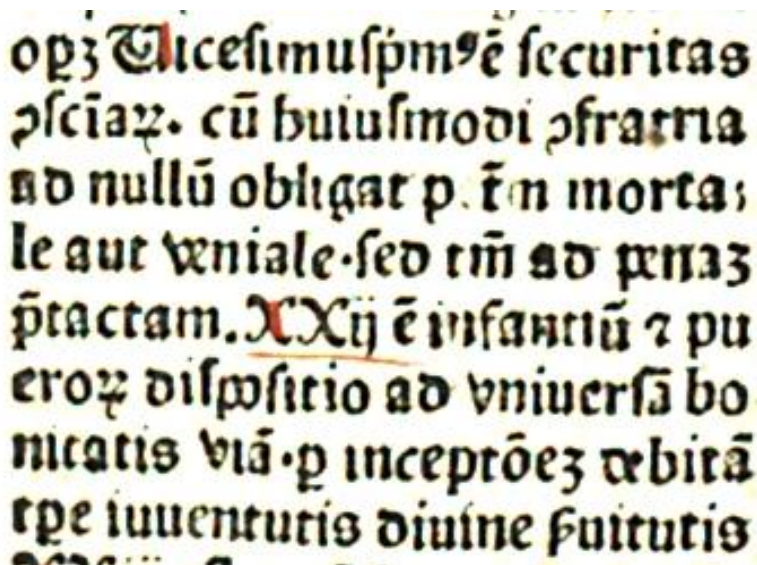 oꝑꝫ Uiceſimuſpͥmꝰ ē ſecuritas
ꝯſcīaꝝ. cū huiuſmodi ꝯfratria
ad nullū obligat p. t̄m morta⸗
le aut veniale·ſed tm̄ ad penaꝫ
p̄tactam. XXij ē infantiū ⁊ pu
eroꝝ diſpoſitio ad vniuerſā bo
nitatis viā·ꝑ inceptōeꝫ debitā
tꝑe iuuentutis diuine ẜuitutis